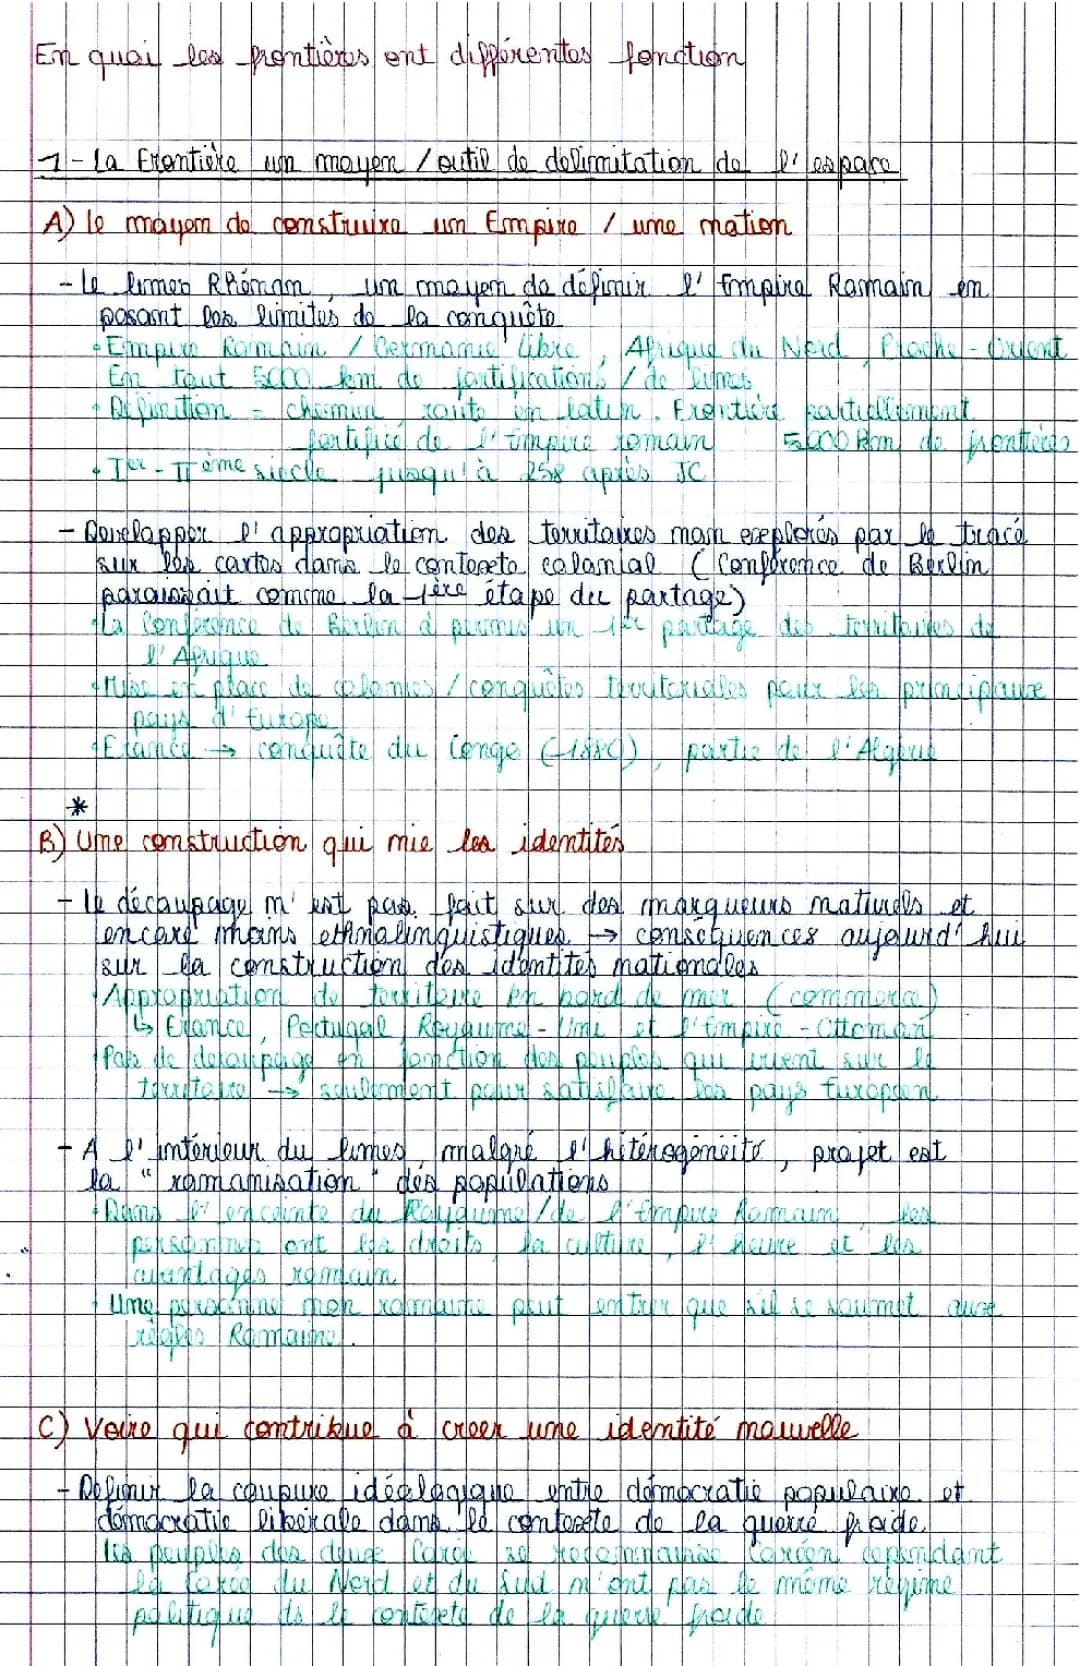 En quoi les frontières ont différentes fonction
1 - La Frontière un moyen / outil de délimitation de l'espace
A) le moyen de construire un Empire / une nation
- Le limes Rhénan, un moyen de définir l'Empire Romain en
posant les limites de la conquête
• Empire Romain / Germanie libre, Afrique du Nord, Proche-Orient
En tout 5000 km de fortifications / de limes
• Définition = chemin route en latin. Frontière partiellement
fortifié de l'Empire romain 5000 km de frontières
• Ier - IIème siècle jusqu'à 258 après JC
- Développer l'appropriation des territoires non explorés par le tracé
sur les cartes dans le contexte colonial (Conférence de Berlin
paraissait comme la 1ère étape du partage)
• La Conférence de Berlin à permis un 1er partage des territoires de
l'Afrique
• Mise en place de colonies / conquêtes territoriales pour les principaux
pays d'Europe
• France → conquête du Congo (-1880), partie de l'Algérie
*
B) Une construction qui nie les identités
- le découpage n'est pas fait sur des marqueurs naturels et
encore moins ethnolinguistiques → conséquences aujourd'hui
sur la construction des identités nationales
• Appropriation de territoire en bord de mer (commerce)
↳ France, Portugal, Royaume-Uni et l'Empire-Ottoman
• Pas de découpage en fonction des peuples qui vivent sur le
territoire → seulement pour satisfaire les pays Européen
- A l'intérieur du limes, malgré l'hétérogénéité, projet est
la "romanisation" des populations
• Dans l'enceinte du Royaume / de l'Empire Romain, les
personnes ont les droits, la culture, l'heure et les
avantages romain
• Une personne non romaine peut entrer que s'il se soumet aux
règles Romaine.
C) Voire qui contribue à créer une identité nouvelle
- Définir la coupure idéologique entre démocratie populaire et
démocratie libérale dans le contexte de la guerre froide
les peuples des deux Corée se Coréen cependant
la Corée du Nord et du Sud n'ont pas le même régime
politique ds le contexte de la guerre froide